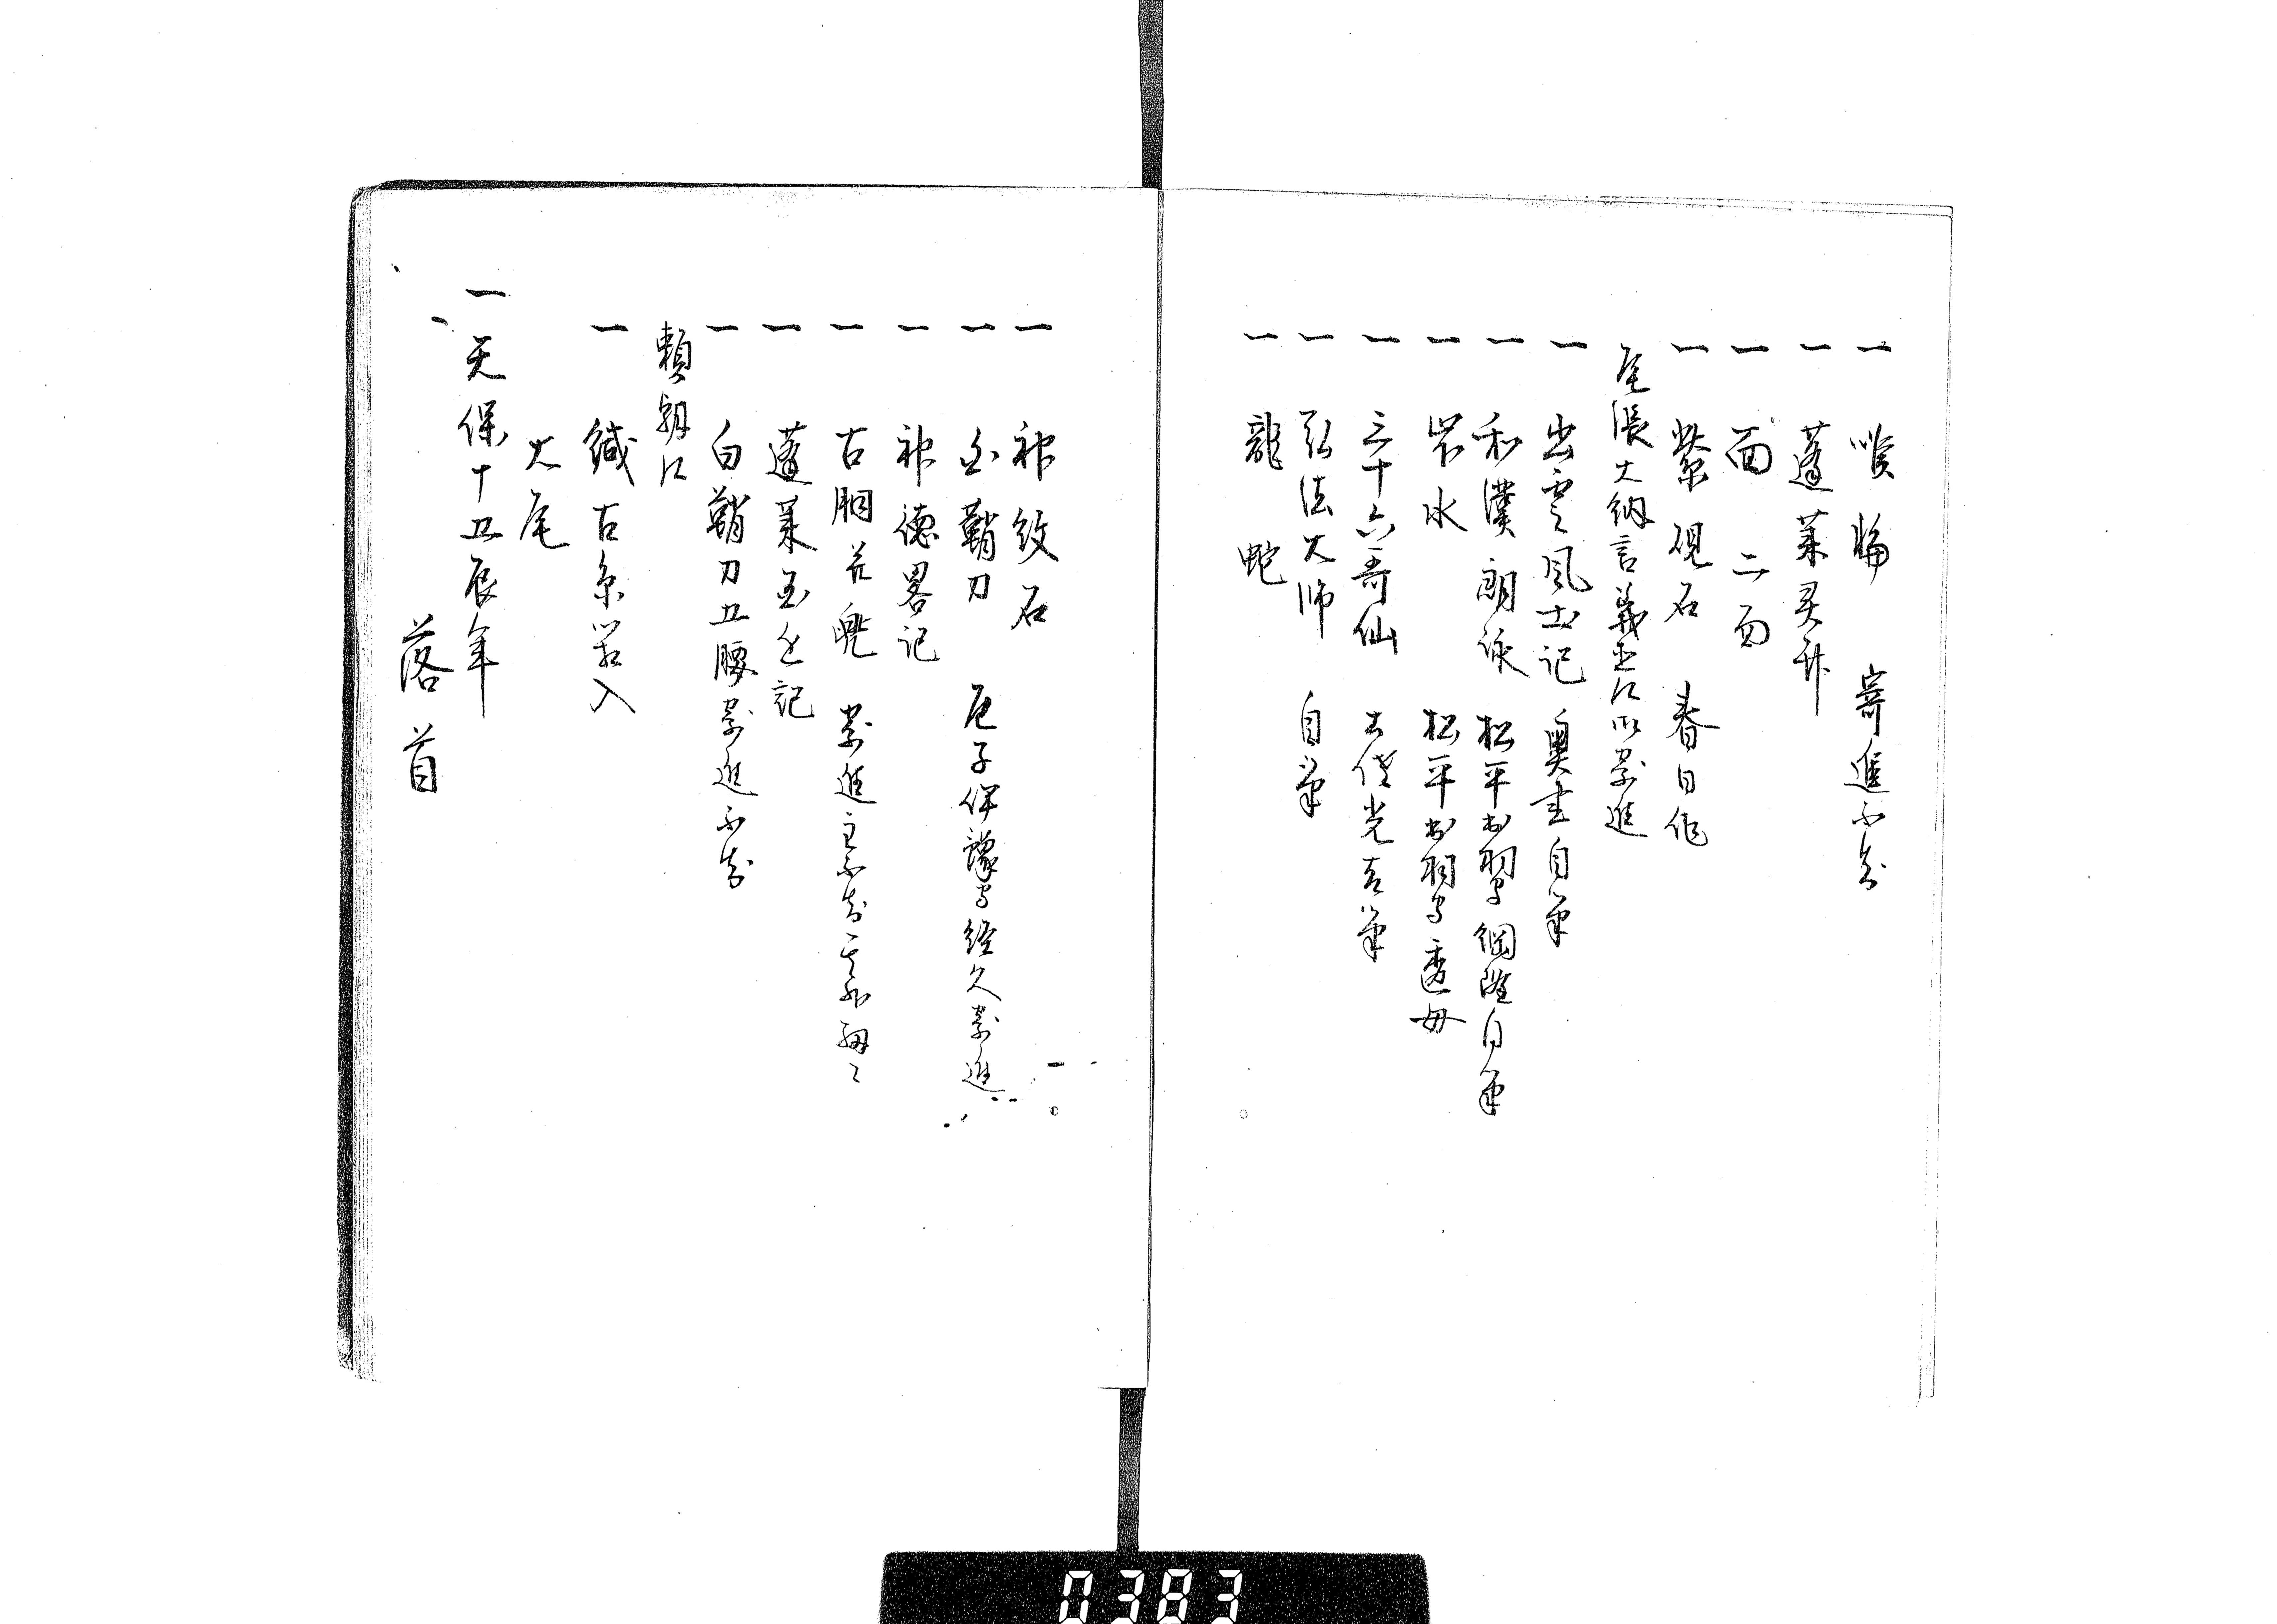 一 寄進不知
一 蓬莱
一 面 二面
一 紫硯石 春日作
尾張大納言義直公御寄進
一 出雲風土記 奥書自筆
一 和漢朗詠 松平出羽守綱隆自筆
一 岩水 松平出羽守
一 三十六哥仙 土佐光吉筆
一 弘法大師 自筆
一 龍蛇
一 神紋石
一 白鞘刀 尼子伊豫守経久寄進
一 神徳畧記
一 古胴并兜 寄進主不知
一 蓬莱
一 白鞘刀五腰寄進不知
頼朝公
一 緘古糸筥入
大尾
一 天保十五辰年
落首
0383